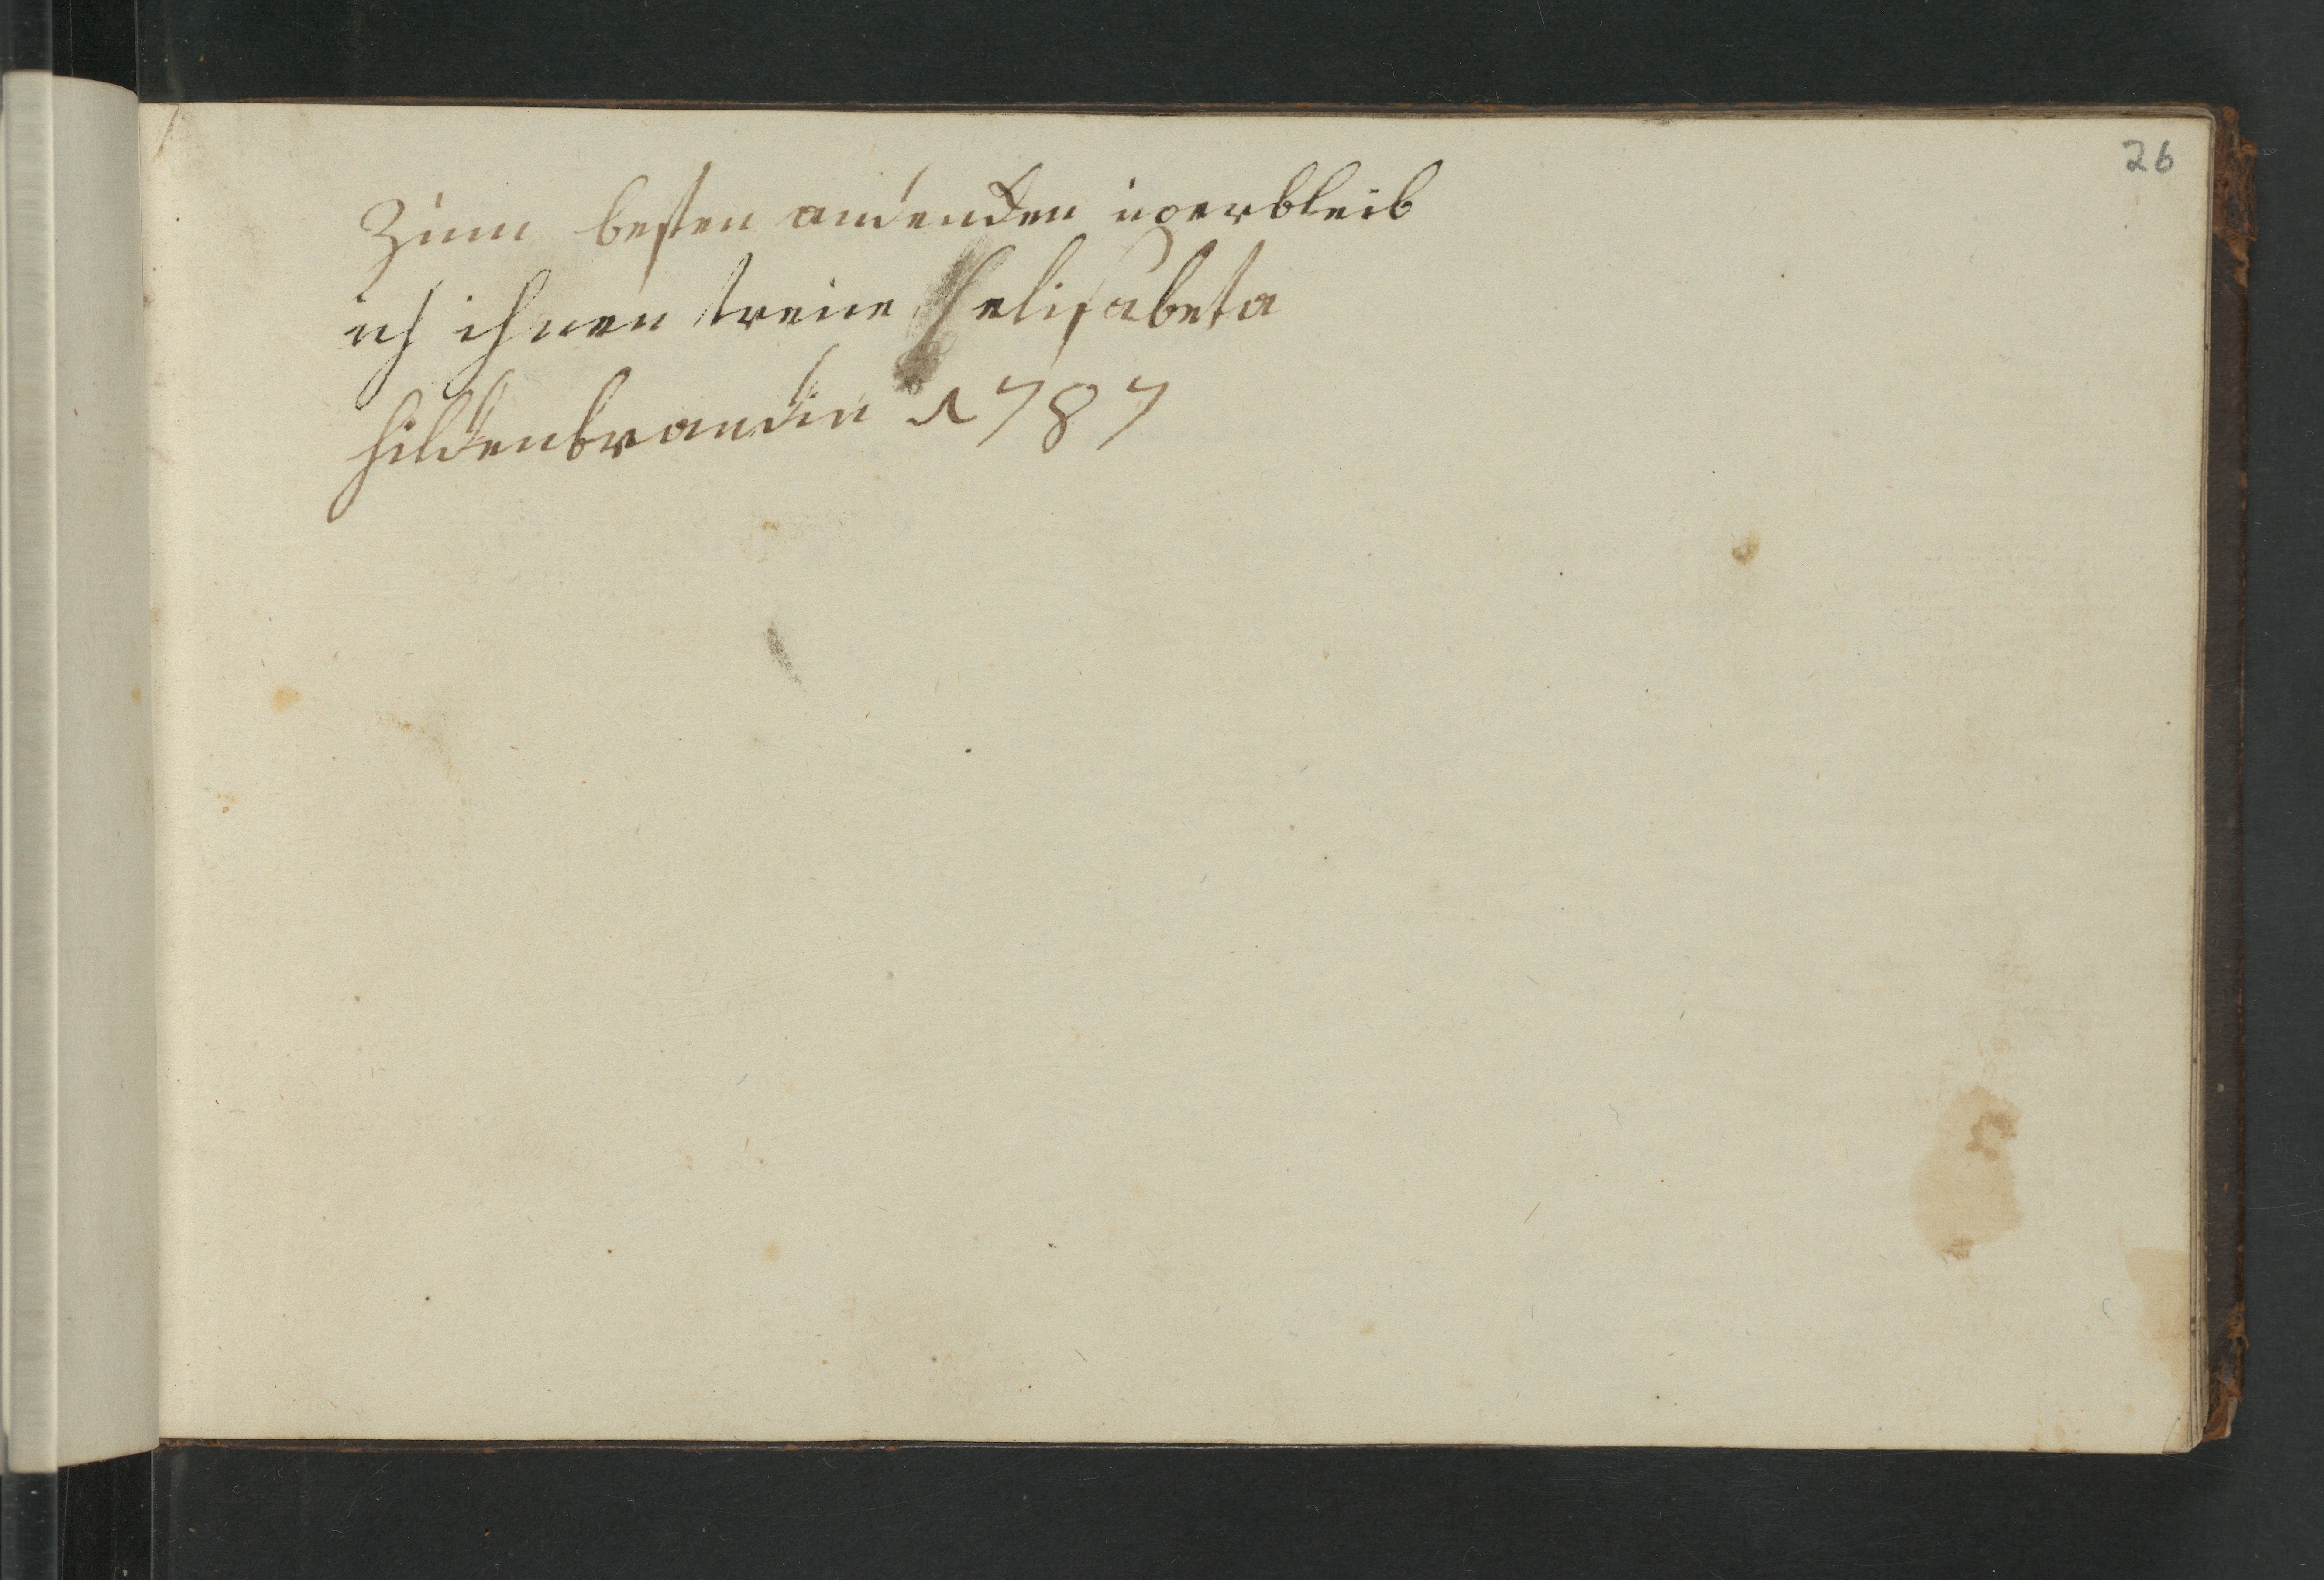 26
Zum besten andencken üverbleib
ich ihnen treüe Helisabeta
Hildenbrandin 1787